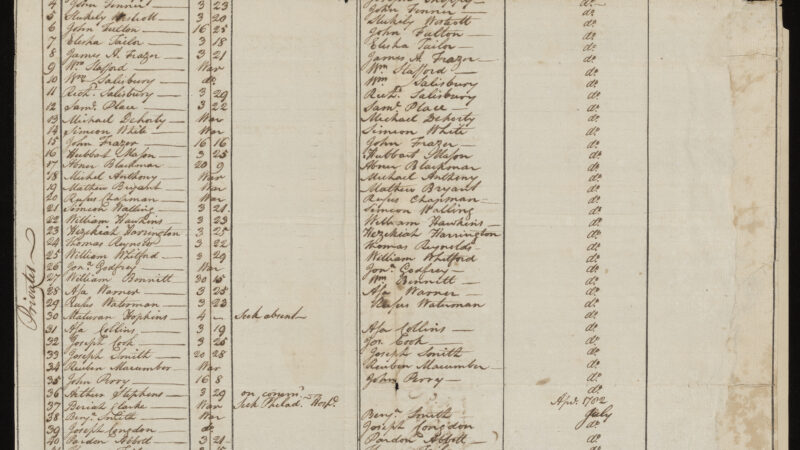 4 John Tennis 3 23 John Tenner do
5 Stukely Westcott 3 20 Stukely Westcott do
6 John Fulton 16 25 John Fulton do
7 Elisha Tailor 3 18 Elisha Tailor do
8 James A. Frazer 3 21 James A. Frazer do
9 Wm Stafford War Wm Stafford do
10 Wm Salisbury do Wm Salisbury do
11 Richd. Salisbury 3 29 Richd. Salisbury do
12 Saml. Place 3 22 Saml. Place do
13 Michael Dehorty War Michael Dehorty do
14 Simeon White War Simeon White do
15 John Frazor 16 16 John Frazer do
16 Hubbart Mason 3 25 Hubbart Mason do
17 Abner Blackmar 20 9 Abner Blackmar do
18 Michel Anthony War Michael Anthony do
19 Mathew Bryant War Mathew Bryant do
20 Rufus Chapman War Rufus Chapman do
21 Simeon Walling 3 21 Simeon Walling do
22 William Hawkins 3 23 William Hawkins do
23 Hezekiah Harrington 3 25 Hezekiah Harrington do
24 Thomas Reynols 3 22 Thomas Reynolds do
25 William Whitford 3 29 William Whitford do
26 Jona. Godfrey War Jona. Godfrey do
27 William Bennitt 30 15 Wm Bennitt do
28 Asa Warner 3 25 Asa Warner do
29 Rufus Waterman 3 23 Rufus Waterman do
30 Maturan Hopkins 4 Sick absent do
31 Asa Collins 3 19 Asa Collins do
32 Joseph Cook 3 25 Jos. Cook do
33 Joseph Smith 20 28 Joseph Smith do
34 Reuben Macumber War Reuben Macumber do
35 John Perry 16 8 John Perry do
36 Arther Stephens 3 29 on comm. do
37 Beriah Clarke War Sick Philad. Hosp. Apr. 1782
38 Benj. Smith War Benj. Smith July
39 Joseph Congdon do Joseph Congdon do
40 Pardon Abbott 3 21 Pardon Abbott do
Privates